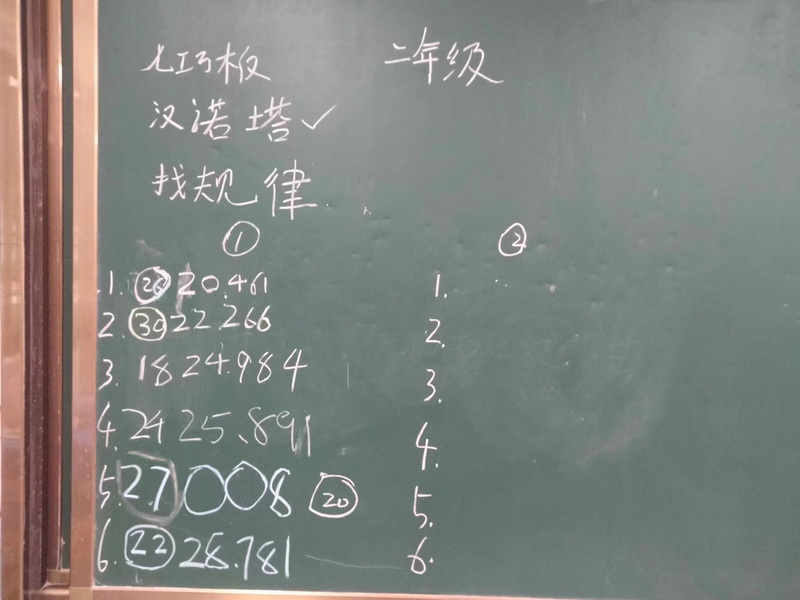 七巧板 二年级
汉诺塔✓
找规律
① ②
1. 26 20.461 1.
2. 30 22.266 2.
3. 18 24.984 3.
4. 24 25.891 4.
5. 27.008 20 5.
6. 22 28.781 6.